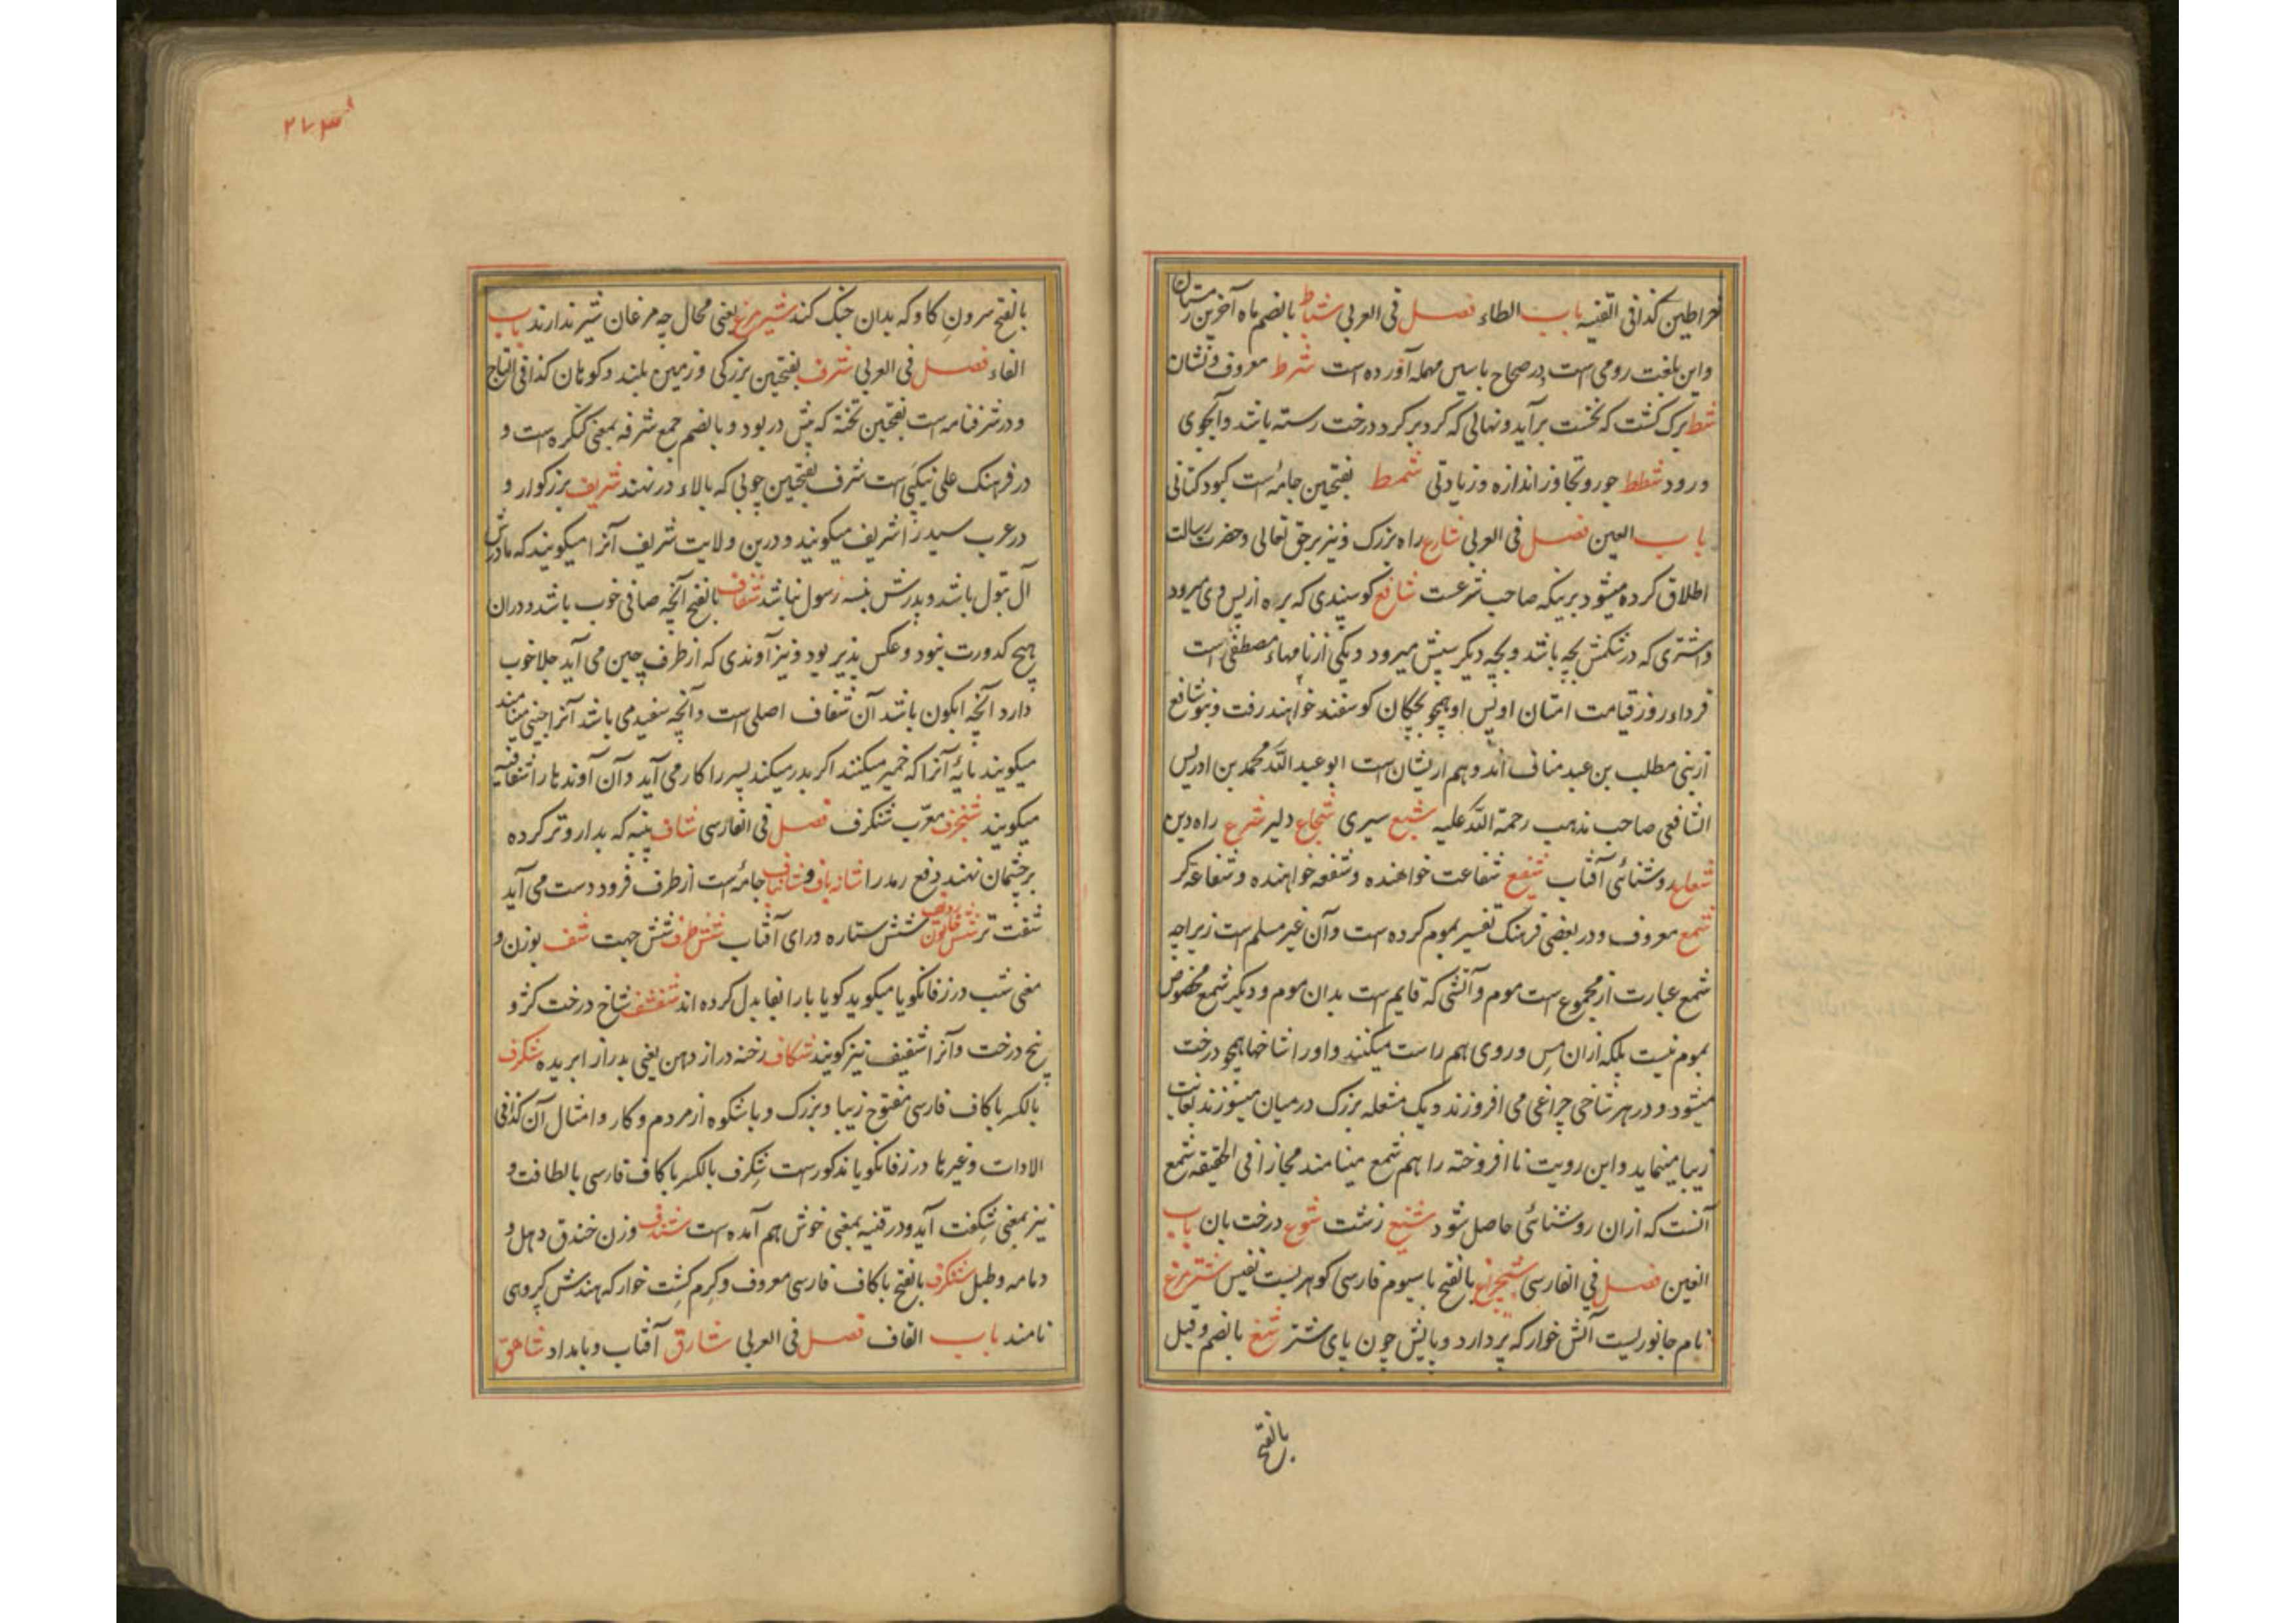 خراطین کذا فی القنیه باب الطاء فصل فی العربی شباط بالضم ماه آخرین زمستان
و این بلغت رومی است و در صحاح با سین مهمله آورده است شرط معروف و نشان
شط برک کشت که نخست برآید و نهالی که کرد بر کرد درخت رسته باشد و آبجوی
و رود شطط جور و تجاوز اندازه و زیادتی شمط بفتحین جامهٔ است کبود کتانی
باب العین فصل فی العربی شارع راه بزرک و نیز بر حق تعالی و حضرت رسالت
اطلاق کرده میشود برینکه صاحب شرعست شافع کوسپندی که بره از پس وی میرود
و اشتری که در شکمش بچه باشد و بچه دیکر سپش میرود و یکی از نامهاء مصطفی است
فرداء روز قیامت امتان او پس او همچو بچکان کوسفند خواهند رفت و بنو شافع
از بنی مطلب بن عبد مناف اند و هم ازیشان است ابو عبد الله محمد بن ادریس
الشافعی صاحب مذهب رحمة الله علیه شبع سیری شجاع دلیر شرع راه دین
شعاع روشنائی آفتاب شفیع شفاعت خواهنده و شفعه خواهنده و شفاعة کر
شمع معروف و در بعضی فرهنک تفسیر بموم کرده است و آن غیر مسلم است زیراچه
شمع عبارت از مجموع است موم و آتشی که قایم است بدان موم و دیکر شمع مخصوص
بموم نیست بلکه ازان مس و روی هم راست میکنند و او را شاخها همچو درخت
میشود و در هر شاخی چراغی می افروزند و یک مشعله بزرک در میان میسوزند بغایت
زیبا مینماید و این رویت ناافروخته را هم شمع مینامند مجازا فی الحقیقه شمع
آنست که ازان روشنائی حاصل شود شنیع زشت شوع درخت بان باب
الغین فصل فی الفارسی شبچراغ بالفتح با سیوم فارسی کوهریست نفیس شترمرغ
نام جانوریست آتش خوار که پر دارد و پایش چون پای شتر شغ بالضم و قیل
بالفتح
۲۷۳
بالفتح سرون کاو که بدان جنک کند شیر مرغ یعنی محال چه مرغان شیر ندارند باب
الفاء فصل فی العربی شرف بفتحین بزرکی و زمین بلند و کوهان کذا فی التاج
و در شرفنامه است بفتحین تخته که پیش در بود و بالضم جمع شرفه بمعنی کنکره است و
در فرهنک علی نیکی است شرف بفتحین چوبی که بالاء در نهند شریف بزرکوار و
در عرب سید را شریف میکویند و درین ولایت شریف آنرا میکویند که مادرش
آل بتول باشد و پدرش نبسه رسول نباشد شفاف بالفتح آنچه صافی خوب باشد و دران
هیچ کدورت نبود و عکس پذیر بود و نیز آوندی که از طرف چین می آید جلا خوب
دارد آنچه آبکون باشد آن شفاف اصلی است و آنچه سفید می باشد آنرا چینی مینامند
میکویند مایهٔ آنرا که خمیر میکنند اکر پدر میکند پسر را کار می آید و آن آوندها را شفافیه
میکویند شنجرف معرب شنکرف فصل فی الفارسی شاف پنبه که بدارو تر کرده
بر چشمان نهند دفع رمد را شانه باف و شانباف جامهٔ است از طرف فرود دست می آید
شفت تر شش خاتون شش ستاره ورای آفتاب شش طرف شش جهت شف بوزن و
معنی شب در زفانکویا میکوید کویا با را بفا بدل کرده اند شفشف شاخ درخت کژ و
پنج درخت و آنرا شفیف نیز کویند شکاف رخنه دراز دهن یعنی بدرازا بریده شکرف
بالکسر با کاف فارسی مفتوح زیبا و بزرک و باشکوه از مردم و کار و امثال آن کذا فی
الادات و غیرها در زفانکویا مذکورست شکرف بالکسر با کاف فارسی بالطافت و
نیز بمعنی شکفت آید و در قنیه بمعنی خوش هم آمده است شندف وزن خندق دهل و
دمامه و طبل شنکرف بالفتح با کاف فارسی معروف و کرم کشت خوار که هندش کروهی
نامند باب القاف فصل فی العربی شارق آفتاب و بامداد شاهق